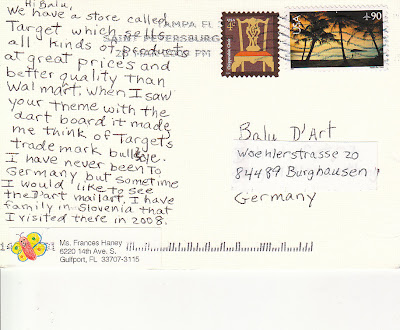 Hi Balu,
We have a store called
Target which sells
all kinds of products
at great prices and
better quality than
Walmart. When I saw
your theme with the
dart board it made
me think of Target's
trade mark bullseye.
I have never been to
Germany but sometime
I would like to see
the D'art mailart. I have
family in Slovenia that
I visited there in 2008.
TAMPA FL
SAINT PETERSBURG
PM
USA
+90
Balu D'Art
Woehlerstrasse 20
84489 Burghausen
Germany
Ms. Frances Haney
6220 14th Ave. S.
Gulfport, FL 33707-3115